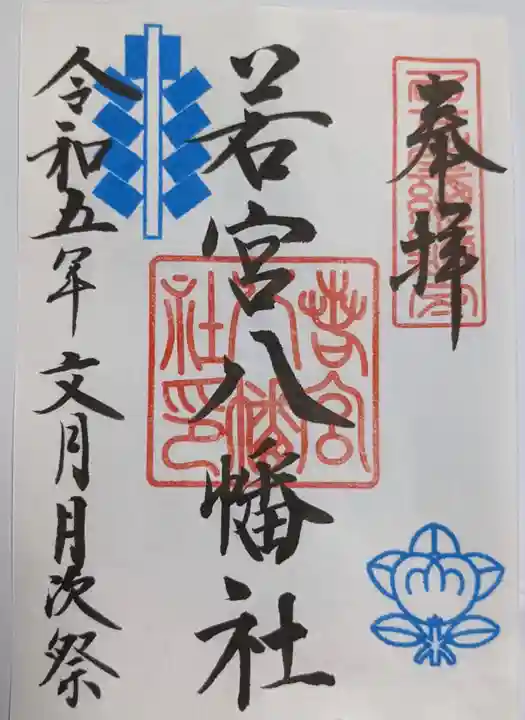 奉拝
若宮八幡社
令和五年文月月次祭
若宮
八幡
社印